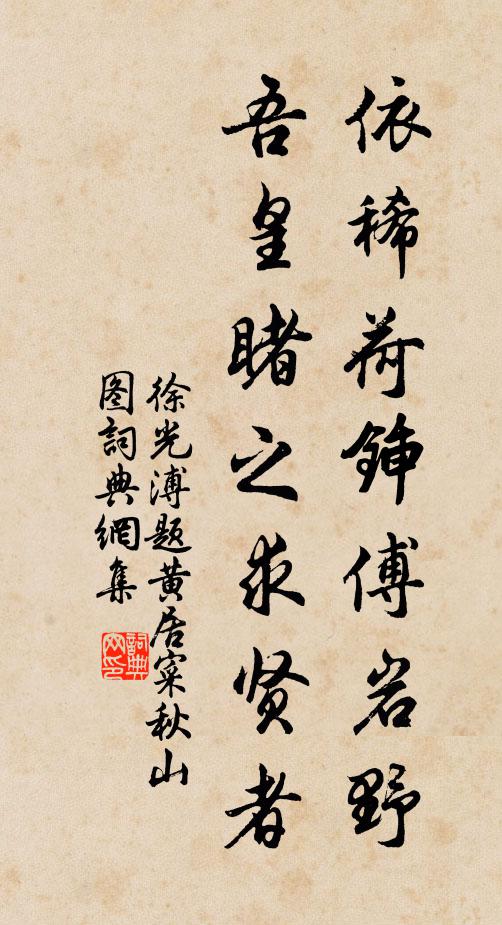 依稀荷锸傅岩野
吾皇睹之求贤者
徐光溥题黄居寀秋山
图词典網集
詞典网印